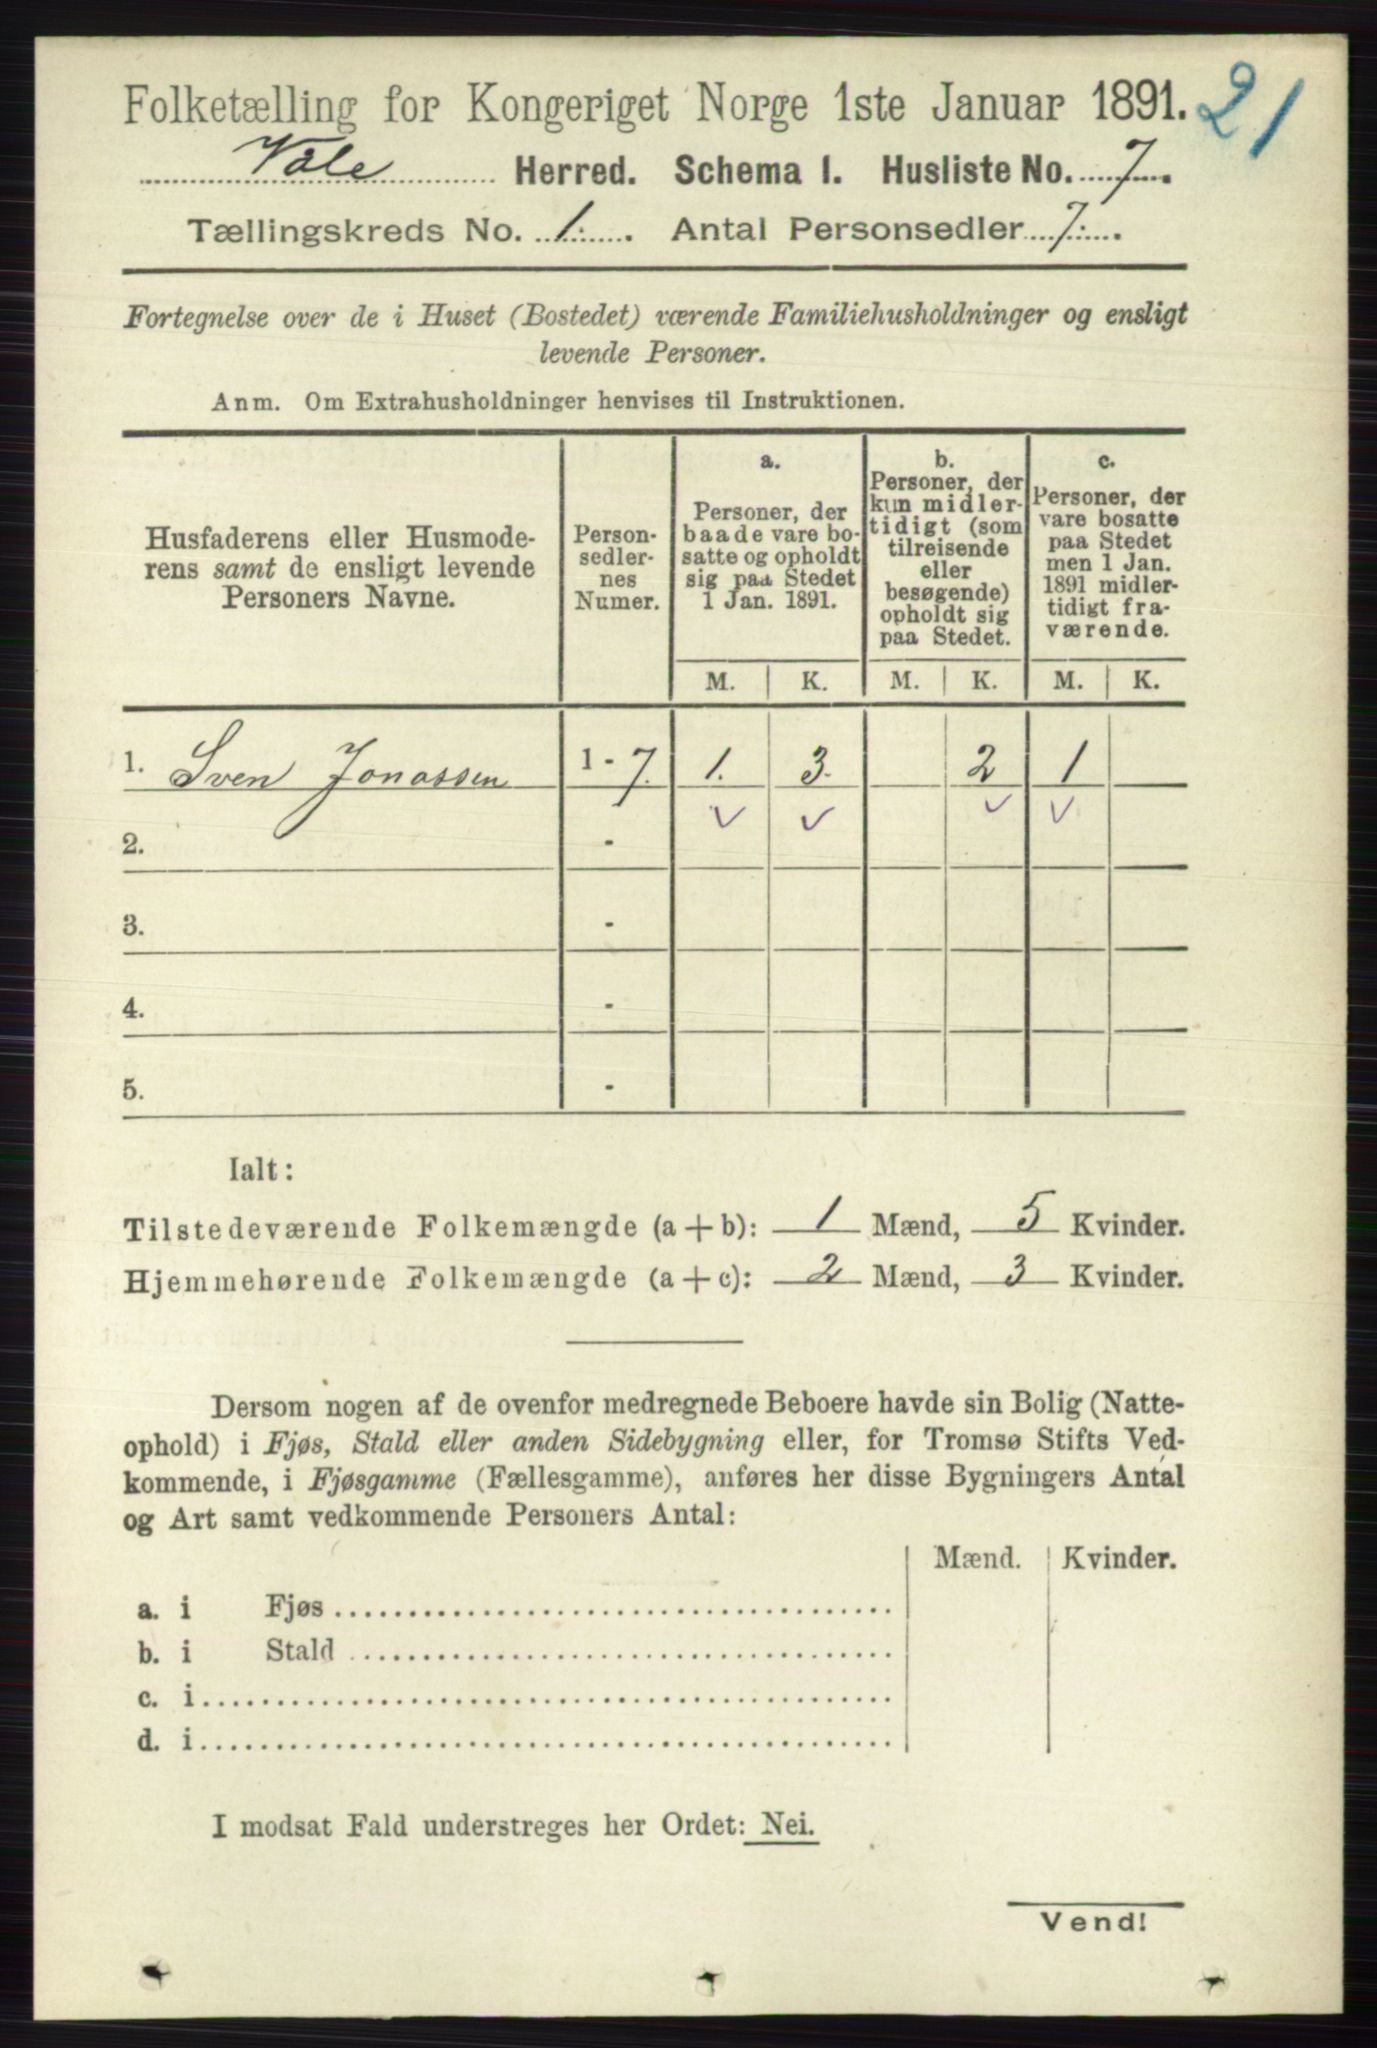 Folketælling for Kongeriget Norge 1ste Januar 1891.
21
Våle Herred. Schema I. Husliste No. 7.
Tællingskreds No. 1. Antal Personsedler 7.
Fortegnelse over de i Huset (Bostedet) værende Familiehusholdninger og ensligt
levende Personer.
Anm. Om Extrahusholdninger henvises til Instruktionen.
Husfaderens eller Husmode-
rens samt de ensligt levende
Personers Navne.
Person-
sedler-
nes
Numer.
a.
Personer, der
baade vare bo-
satte og opholdt
sig paa Stedet
1 Jan. 1891.
b.
Personer, der
kun midler-
tidigt (som
tilreisende
eller
besøgende)
opholdt sig
paa Stedet.
c.
Personer, der
vare bosatte
paa Stedet
men 1 Jan.
1891 midler-
tidigt fra-
værende.
M. K. M. K. M. K.
1. Sven Jonassen 1 - 7. 1. 3. 2 1
2. -
3. -
4. -
5. -
Ialt:
Tilstedeværende Folkemængde (a + b): 1 Mænd, 5 Kvinder.
Hjemmehørende Folkemængde (a + c): 2 Mænd, 3 Kvinder.
Dersom nogen af de ovenfor medregnede Beboere havde sin Bolig (Natte-
ophold) i Fjøs, Stald eller anden Sidebygning eller, for Tromsø Stifts Ved-
kommende, i Fjøsgamme (Fællesgamme), anføres her disse Bygningers Antal
og Art samt vedkommende Personers Antal:
Mænd. Kvinder.
a. i Fjøs
b. i Stald
c. i
d. i
I modsat Fald understreges her Ordet: Nei.
Vend!